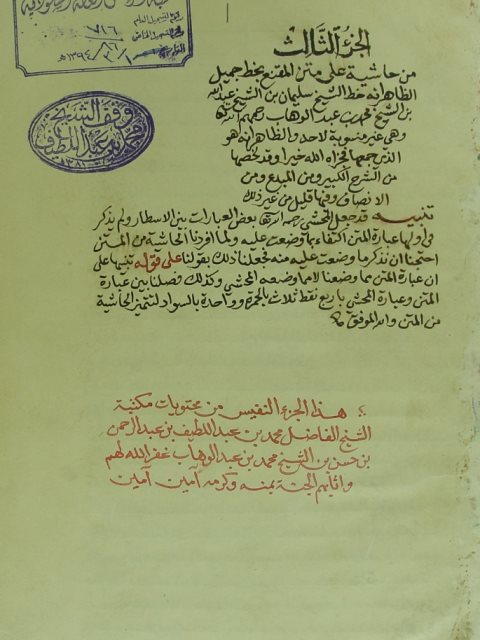 رقم التسجيل العام ٧١٦
رقم التسجيل الخاص ٨٦
١٣٩٤/٣/١ هـ
وقف الشيخ
محمد بن عبد اللطيف
١٣٨١
الجزء الثالث
من حاشية على متن المقنع بخط جميل
الظاهر انه خط الشيخ سليمان بن الشيخ عبد الله
بن الشيخ محمد بن عبد الوهاب رحمهم الله
وهي غير منسوبة لاحد والظاهر انه هو
الذي جمعها فجزاه الله خيرا وقد لخصها
من الشرح الكبير ومن المبدع ومن
الانصاف وفيها قليل من غير ذلك
تنبيه قد جعل المحشي رحمه الله بعض العبارات بين الاسطار ولم يذكر
في اولها عبارة المتن اكتفاء بما وضعت عليه ولما افردنا الحاشية من المتن
احتجنا ان نذكر ما وضعت عليه منه فجعلنا ذلك بقولنا على قوله تنبيها على
ان عبارة المتن مما وضعنا لا مما وضعه المحشي وكذلك فصلنا بين عبارة
المتن وعبارة المحشي باربع نقط ثلاث بالحمرة وواحدة بالسواد لتتميز الحاشية
من المتن والله الموفق
هذا الجزء النفيس من محتويات مكتبة
الشيخ الفاضل محمد بن عبد اللطيف بن عبد الرحمن
بن حسن بن الشيخ محمد بن عبد الوهاب غفر الله لهم
واثابهم الجنة بمنه وكرمه آمين آمين